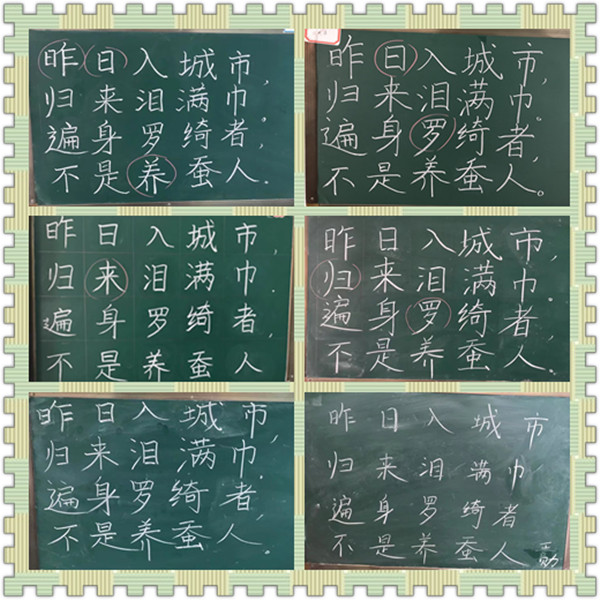 昨日入城市，
归来泪满巾。
遍身罗绮者，
不是养蚕人。
昨日入城市，
归来泪满巾。
遍身罗绮者，
不是养蚕人。
昨日入城市，
归来泪满巾。
遍身罗绮者，
不是养蚕人
昨日入城市，
归来泪满巾。
遍身罗绮者，
不是养蚕人。
昨日入城市，
归来泪满巾。
遍身罗绮者，
不是养蚕人。
昨日入城市
归来泪满巾
遍身罗绮者
不是养蚕人